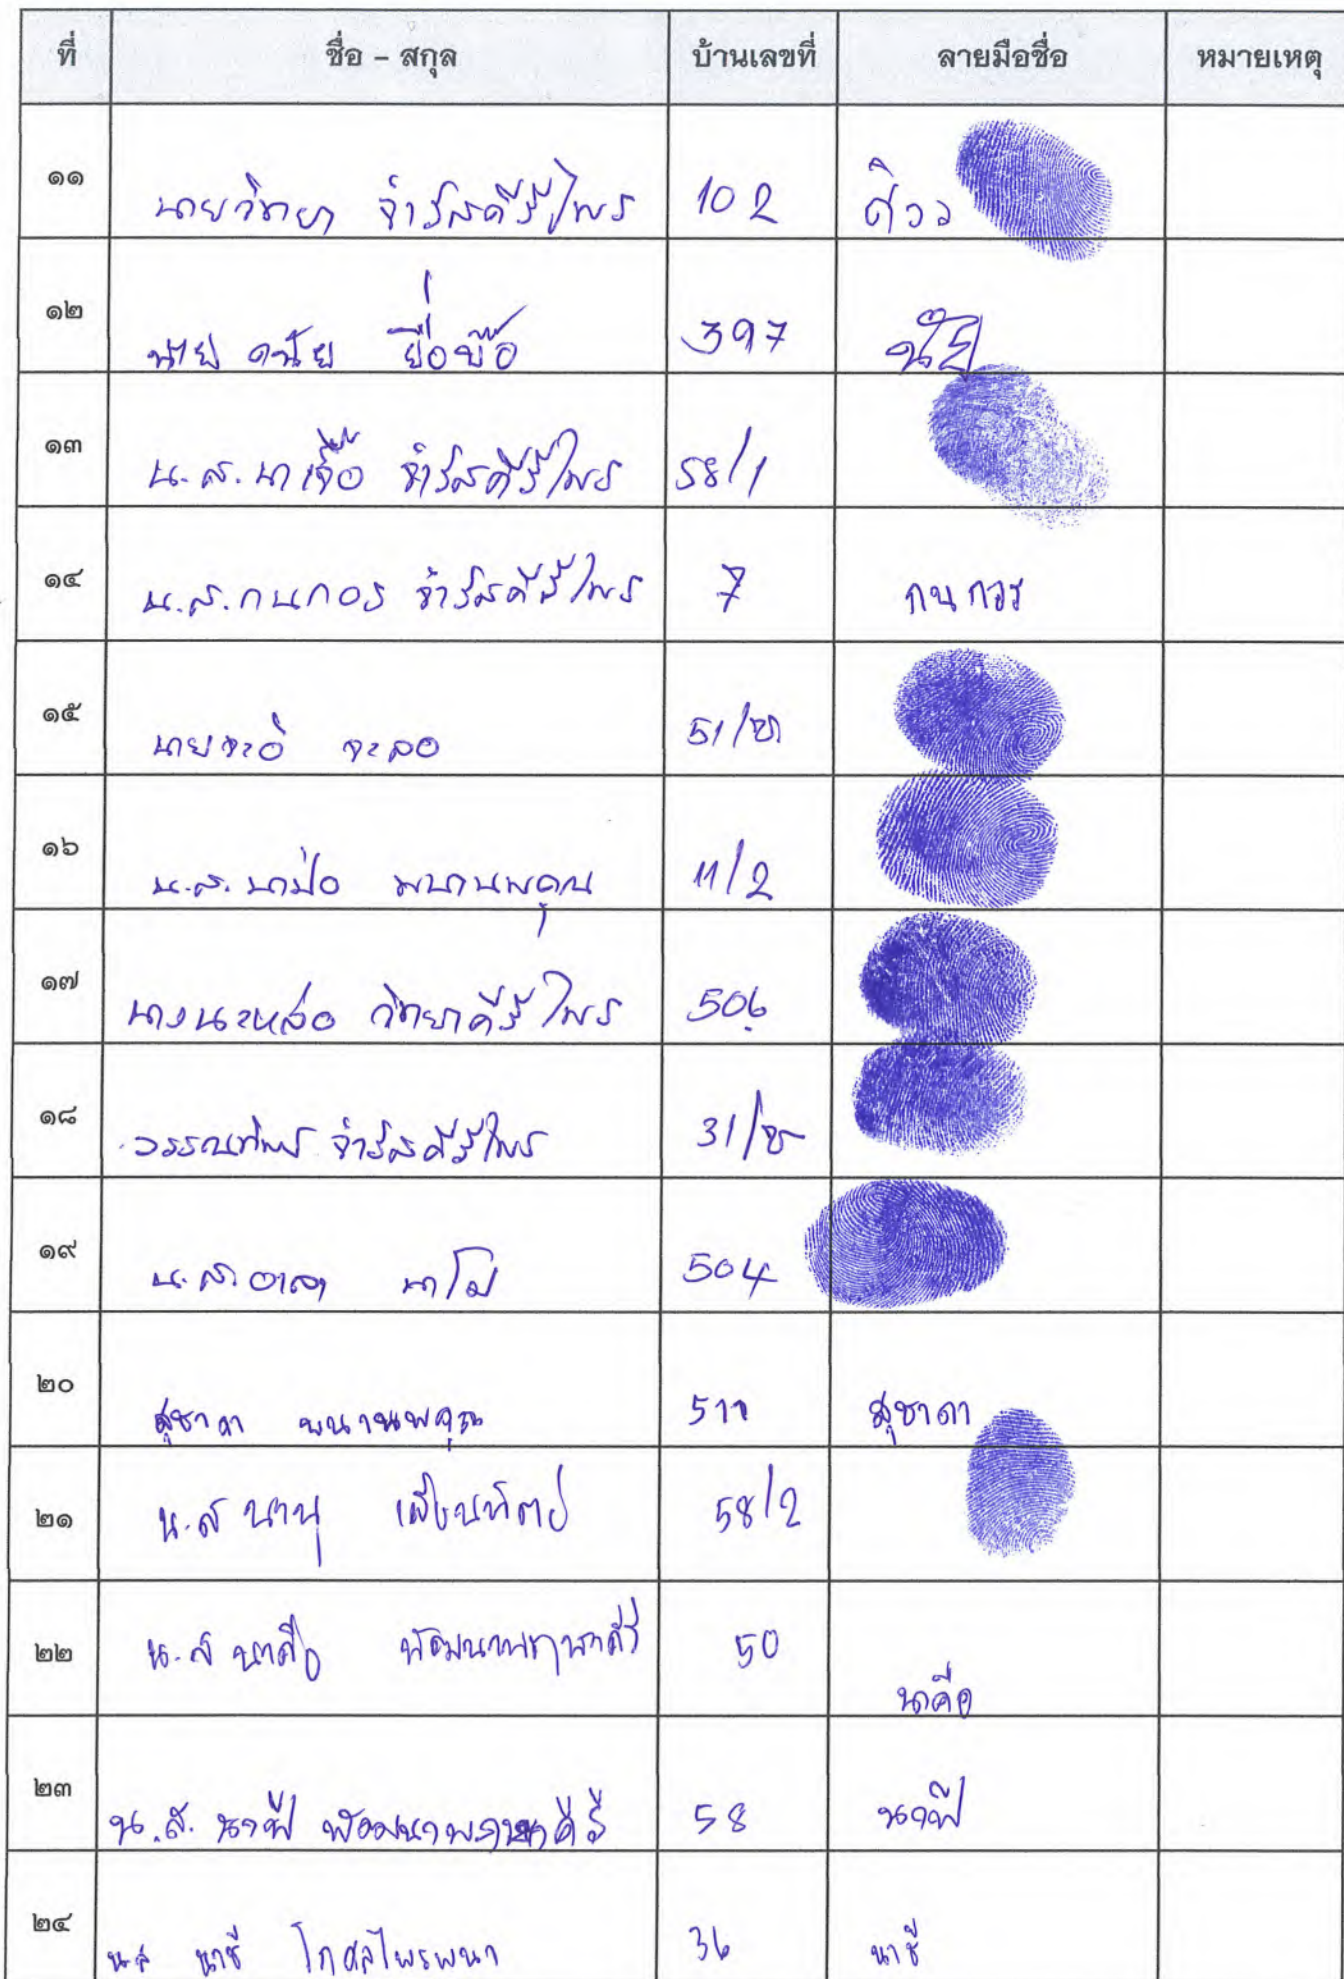 ที่ ชื่อ - สกุล บ้านเลขที่ ลายมือชื่อ หมายเหตุ
๑๑ นายวิทยา จำรัสคีรีไพร 102
๑๒ นาย ดนัย ยื่อบื๊อ 397 นัย
๑๓ น.ส. นาเจื๊อ จำรัสคีรีไพร 58/1
๑๔ น.ส.กนกอร จำรัสคีรีไพร 7 กนกอร
๑๕ นายจะอื จะลอ 51/ช
๑๖ น.ส. นาป่อ พนานพคุณ 11/2
๑๗ นางนะหล่อ วิทยาคีรีไพร 506
๑๘ วรรณทิพร จำรัสคีรีไพร 31/ช
๑๙ น.ส. อาลา นาโม่ 504
๒๐ สุชาดา พนานพคุณ 511 สุชาดา
๒๑ น.ส นานุ 58/2
๒๒ น.ส นาคือ พัฒนาพฤกษาคีรี 50 นาคือ
๒๓ น.ส. นาฟี พัฒนาพฤกษาคีรี 58 นาฟี
๒๔ นส นาชี โกศลไพรพนา 36 นาชี